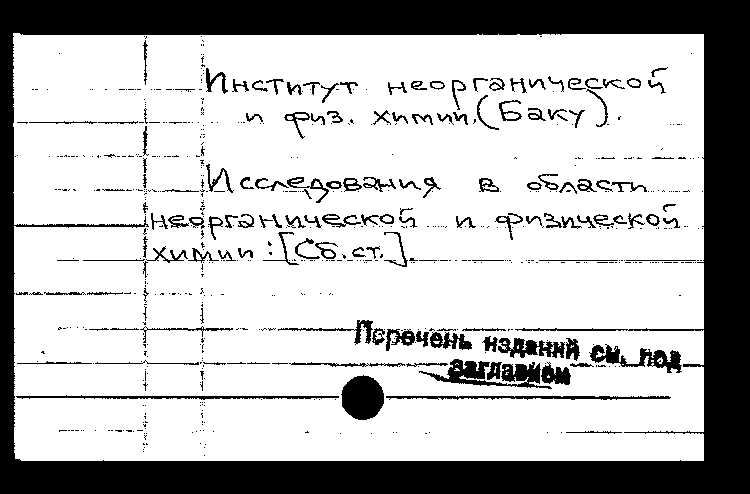 Институт неорганической
и физ. химии. (Баку).
Исследования в области
неорганической и физической
химии : [Сб. ст.].
Перечень изданий см. под
заглавием